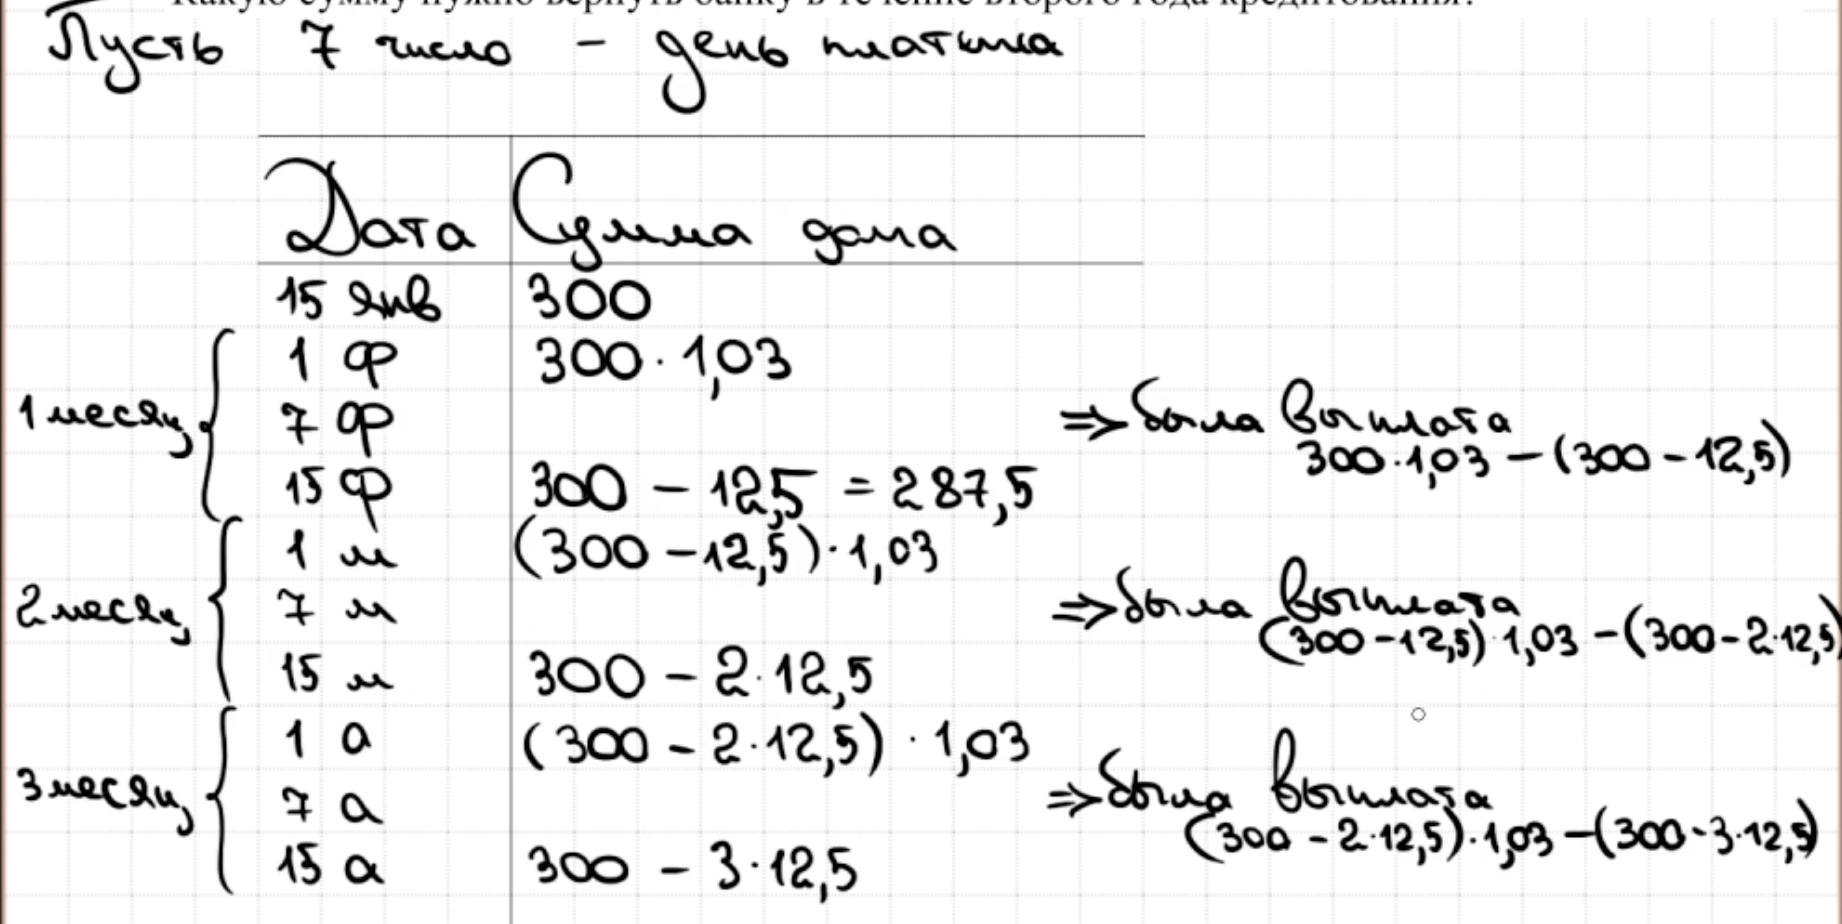 Какую сумму нужно вернуть банку в течение второго года кредитования?
Пусть 7 число – день платежа
Дата Сумма долга
15 янв 300
1 ф 300 · 1,03
1 месяц 7 ф ⇒ была выплата
300·1,03 – (300 – 12,5)
15 ф 300 – 12,5 = 287,5
1 м (300 – 12,5)·1,03
2 месяц 7 м ⇒ была выплата
(300 – 12,5)·1,03 – (300 – 2·12,5)
15 м 300 – 2·12,5
1 а (300 – 2·12,5) · 1,03
3 месяц 7 а ⇒ была выплата
(300 – 2·12,5)·1,03 – (300 - 3·12,5)
15 а 300 – 3·12,5